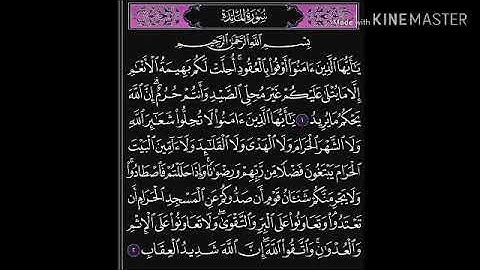 Made with KINEMASTER
سُورَةُ المَائِدَةِ
بِسْمِ اللَّهِ الرَّحْمَٰنِ الرَّحِيمِ
يَا أَيُّهَا الَّذِينَ ءَامَنُوا أَوْفُوا بِالْعُقُودِ أُحِلَّتْ لَكُم بَهِيمَةُ الْأَنْعَامِ
إِلَّا مَا يُتْلَىٰ عَلَيْكُمْ غَيْرَ مُحِلِّي الصَّيْدِ وَأَنتُمْ حُرُمٌ إِنَّ اللَّهَ
يَحْكُمُ مَا يُرِيدُ ١ يَا أَيُّهَا الَّذِينَ ءَامَنُوا لَا تُحِلُّوا شَعَائِرَ اللَّهِ
وَلَا الشَّهْرَ الْحَرَامَ وَلَا الْهَدْيَ وَلَا الْقَلَائِدَ وَلَا ءَامِّينَ الْبَيْتَ
الْحَرَامَ يَبْتَغُونَ فَضْلًا مِّن رَّبِّهِمْ وَرِضْوَانًا وَإِذَا حَلَلْتُمْ فَاصْطَادُوا
وَلَا يَجْرِمَنَّكُمْ شَنَئَانُ قَوْمٍ أَن صَدُّوكُمْ عَنِ الْمَسْجِدِ الْحَرَامِ أَن
تَعْتَدُوا وَتَعَاوَنُوا عَلَى الْبِرِّ وَالتَّقْوَىٰ وَلَا تَعَاوَنُوا عَلَى الْإِثْمِ
وَالْعُدْوَانِ وَاتَّقُوا اللَّهَ إِنَّ اللَّهَ شَدِيدُ الْعِقَابِ ٢